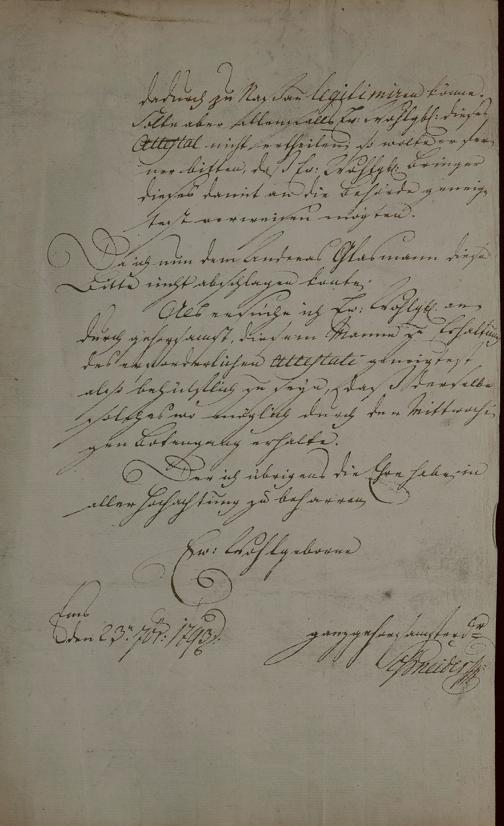 dadurch zu legitimiren könne.
Solte aber allenfalls Ew: Wohlgb: dieses
Attestat nicht ertheilen, so wolte er fer-
ner bitten, daß Ew: Wohlgb: Bringer
dieses damit an die Behörde geneig-
test verweisen mögten.
Da ich nun dem Andreas Glasmann diese
Bitte nicht abschlagen konte,
Als ersuche ich Ew: Wohlgb: an-
durch gehorsamst, diesem Manne zu Erhaltung
des erforderlichen Attestati geneigtest
also behülflich zu seyn, daß derselbe
solches wo möglich durch den Mittwochi-
gen Botengang erhalte.
Der ich übrigens die Ehre habe, in
aller Hochachtung zu beharren
Ew: Wohlgeborne
Ems
den 23n 7br: 1793.
ganz gehorsamster Dr
Schneider